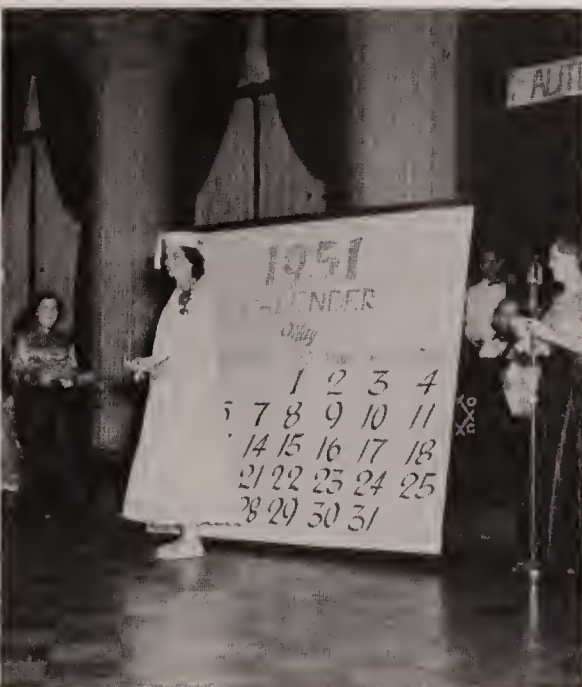 AUT
1951
LENDER
May
1 2 3 4
7 8 9 10 11
14 15 16 17 18
21 22 23 24 25
28 29 30 31